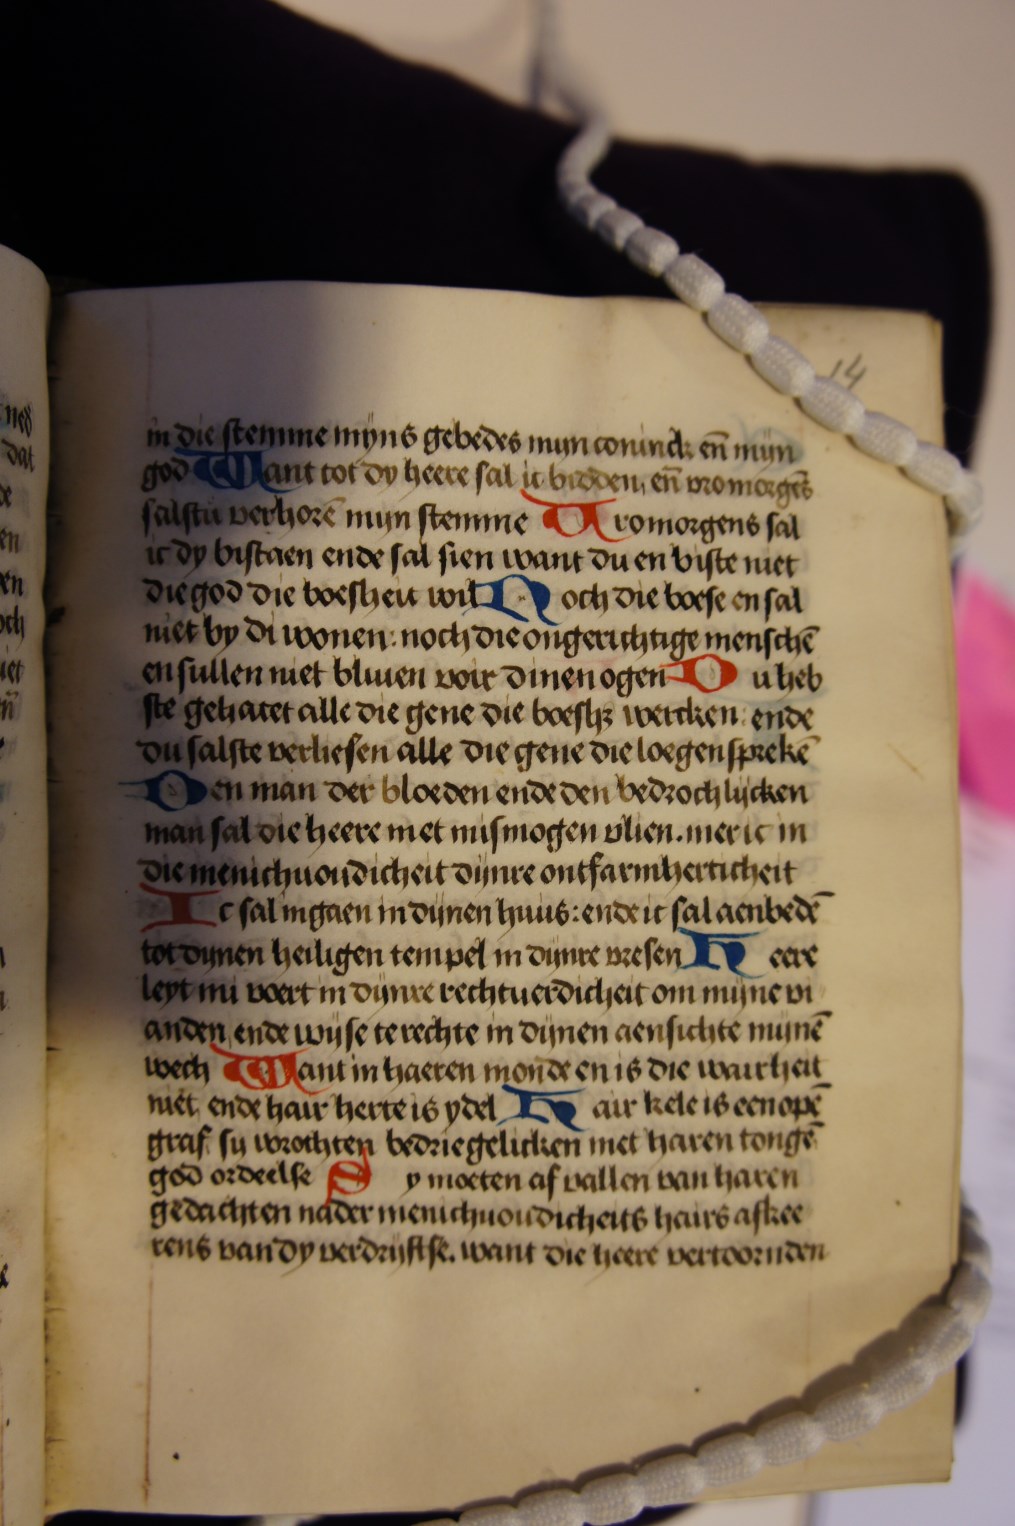 14
in die stemme mijns gebedes mijn coninck en̄ mijn
god Want tot dy heere sal ic bidden, en̄ vromorgēs
salstu verhorē mijn stemme Vromorgens sal
ic dy bistaen ende sal sien want du en biste niet
die god die boesheit wil Noch die boese en sal
niet by di wonen: noch die ongerichtige menschē
en sullen niet bliuen voir dinen ogen Du heb
ste gehatet alle die gene die boesh₃ wercken: ende
du salste verliesen alle die gene die loegen sprekē
Den man der bloeden ende den bedrochlijcken
man sal die heere met mismogen vlien. mer ic in
die menichuoudicheit dijnre ontfarmherticheit
Ic sal ingaen in dijnen huus: ende ic sal aenbedē
tot dijnen heiligen tempel in dijnre vresen Heere
leyt mi voert in dijnre rechtuerdicheit om mijne vi
anden, ende wijse te rechte in dijnen aensichte mijnē
wech Want in haeren monde en is die wairheit
niet, ende hair herte is ydel Hair kele is een opē
graf, sy wrochten bedriegelicken met haren tongē
god ordeelse Sy moeten af vallen van haren
gedachten nader menichuoudicheits hairs afkee
rens van dy verdrijftse. want die heere vertoornden